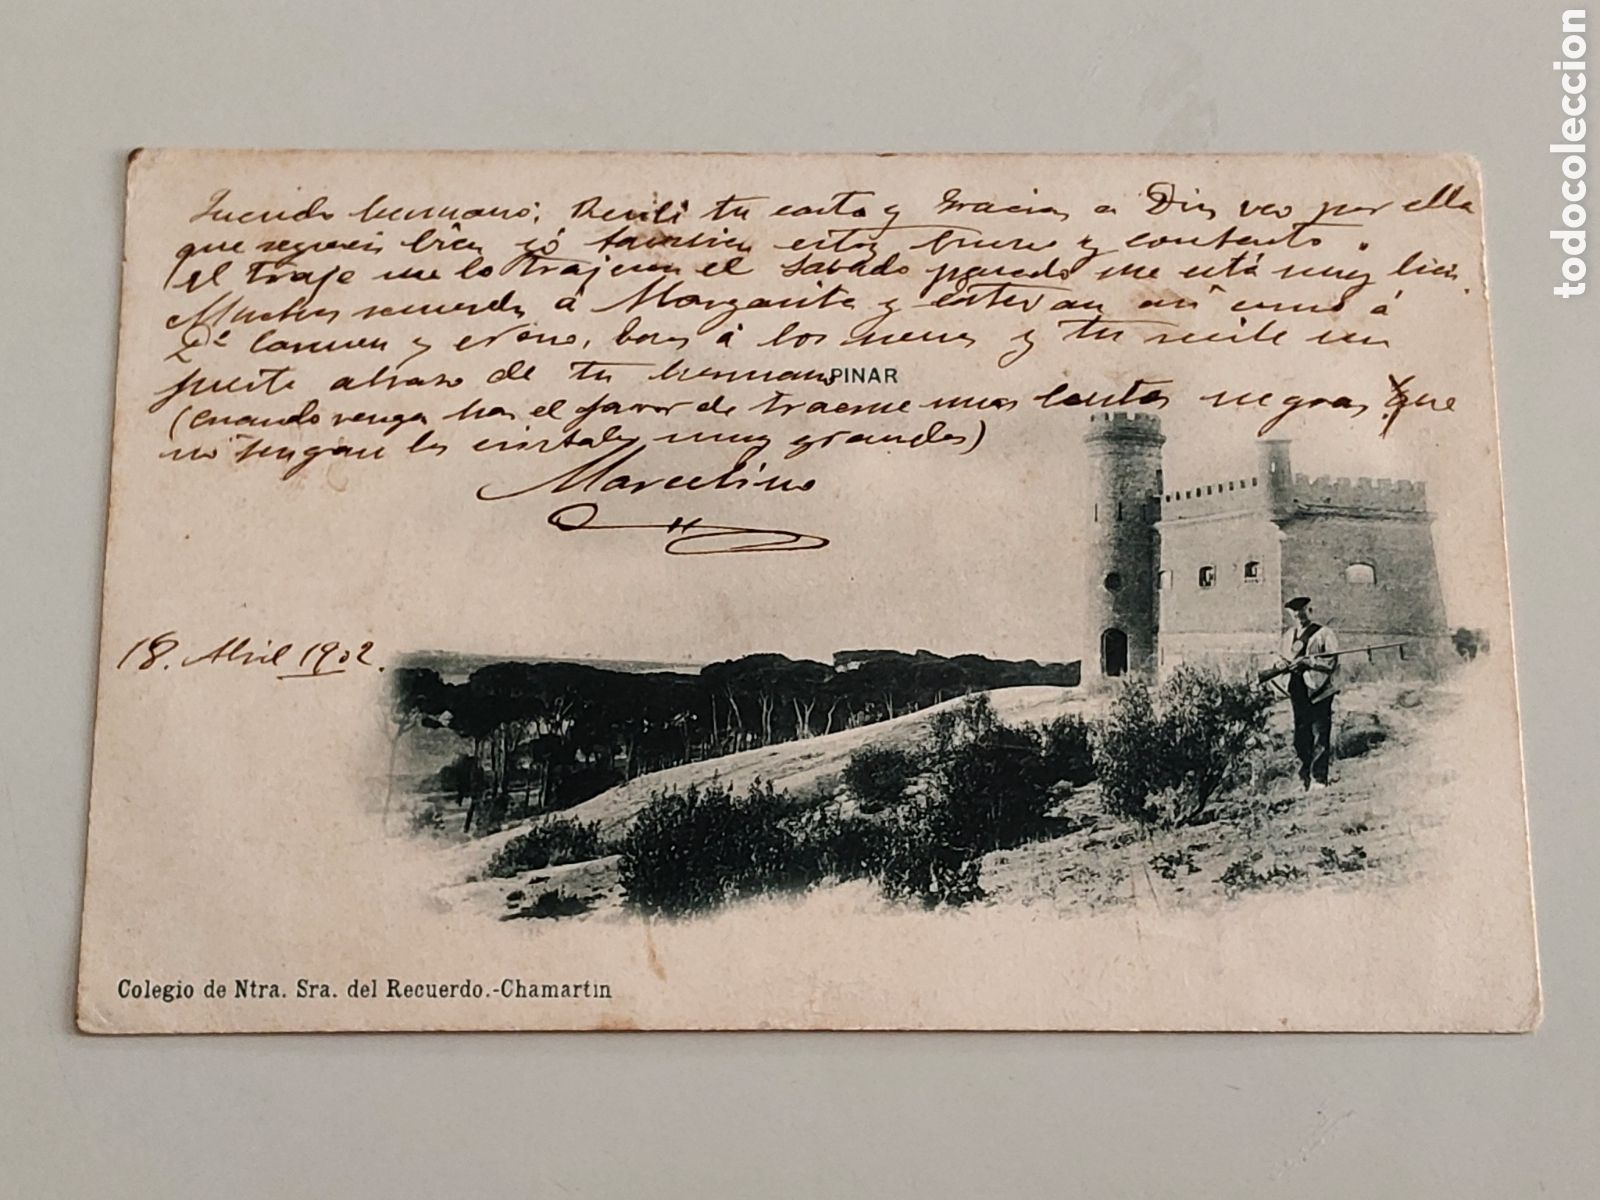 Querido hermano: Recibí tu carta y Gracias a Dios veo por ella
que seguis bien yó tambien estoy bueno y contento.
El traje me lo trajeron el Sabado pasado me está muy bien.
Muchos recuerdos á Margarita y Estevan así como á
Dª Carmen y besos á los nenes y tu recibe un
fuerte abrazo de tu hermano
PINAR
(Cuando venga haz el favor de traerme unas lentes negras que
no tengan los cristales muy grandes)
Marcelino
18. Abril 1902.
Colegio de Ntra. Sra. del Recuerdo.-Chamartin
todocoleccion